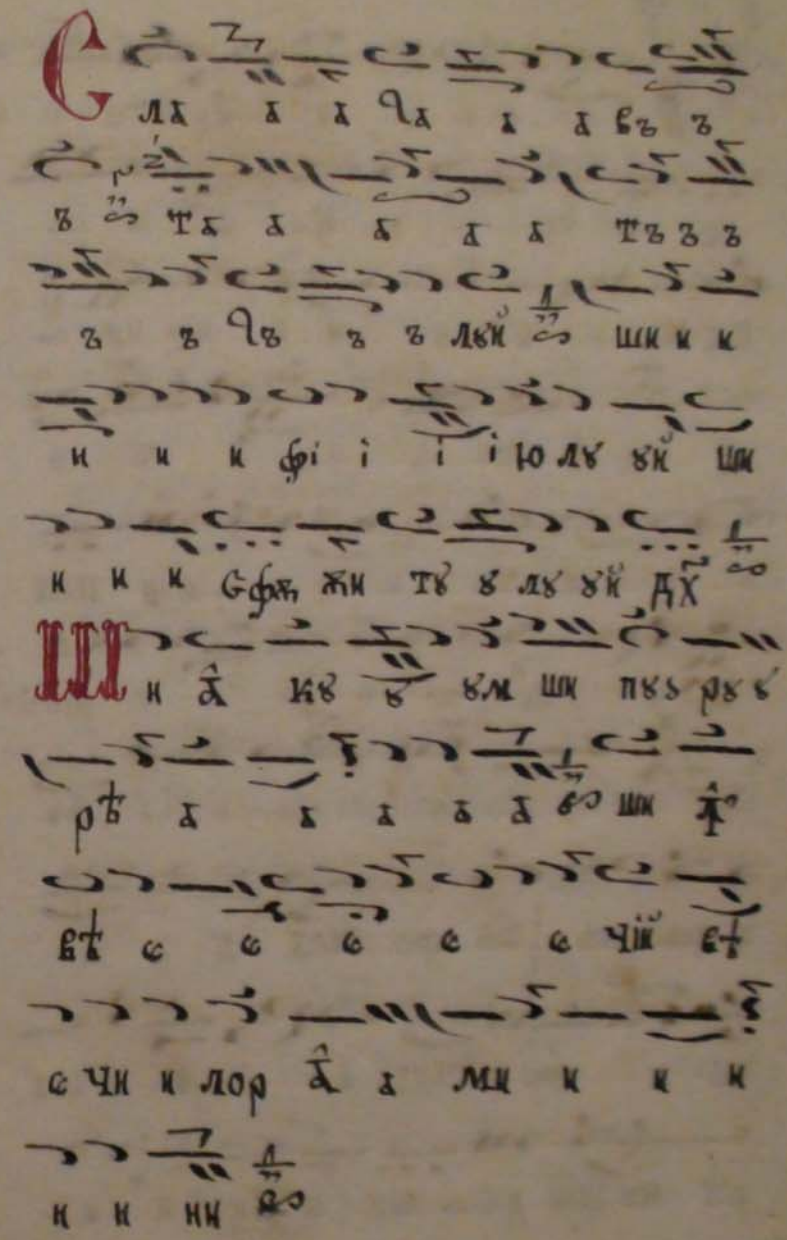 Сла а а ꙋа а а въ ъ
ъ та а а а а тъ ъ ъ
ъ ъ ꙋъ ъ ъ лꙋй ши и и
и и и фі і і і ю лꙋ ꙋй ши
и и и Сфѫ ѫи тꙋ ꙋ лꙋ ꙋй дх҃
Ши а̂ кꙋ ꙋ ꙋм ши пꙋꙋ рꙋ ꙋ
рѣ а а а а а ши ꙟ̂
вѣ є є є є є чїй вѣ
є чи и лор а̂ а ми и и и
и и ни